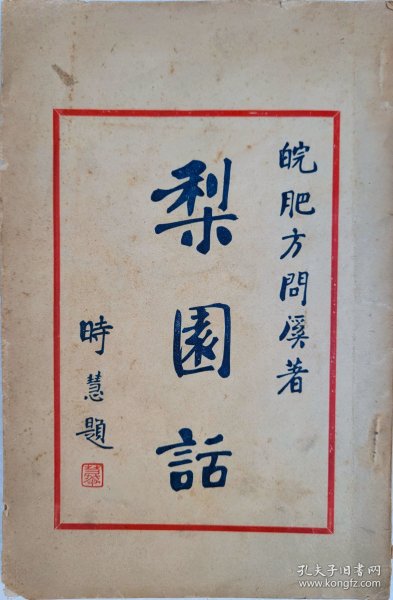 皖肥方問溪著
梨園話
時慧題
孔夫子旧书网
www.kongfz.com